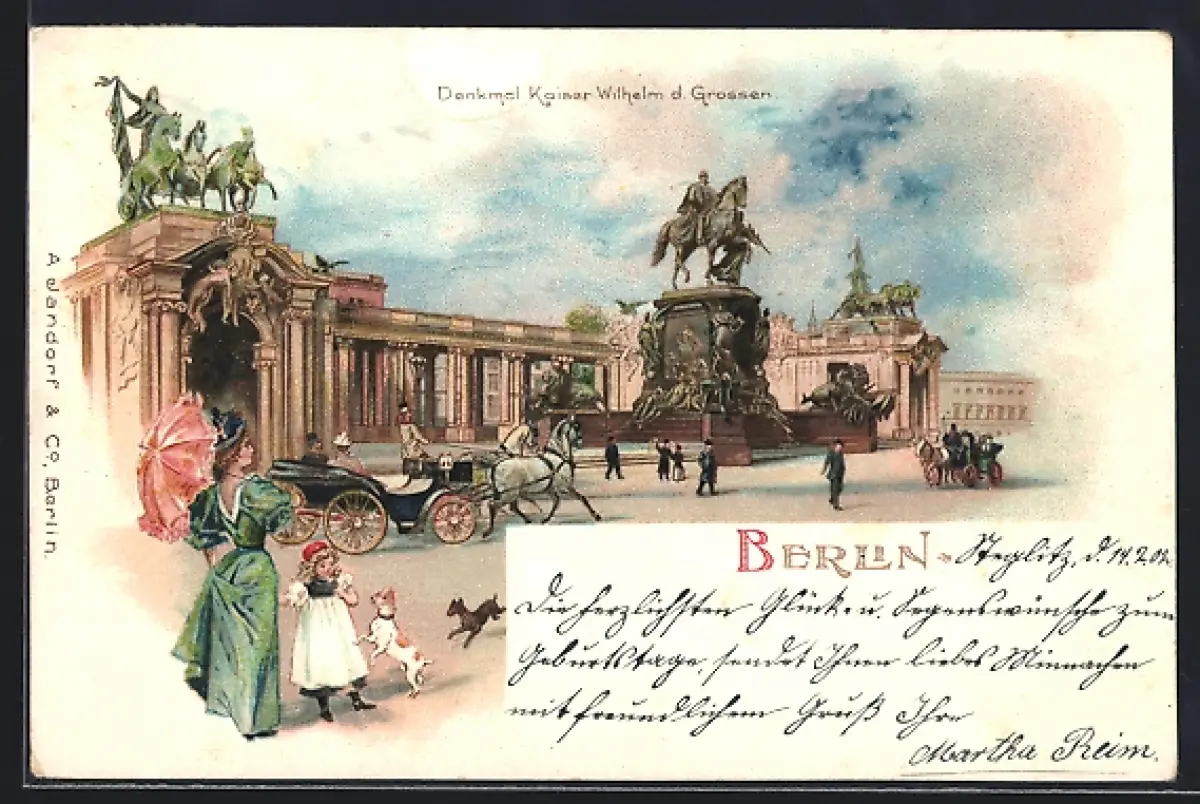 Denkmal Kaiser Wilhelm d. Grossen
A Jandorf & Co, Berlin.
BERLIN - Steglitz, d. 14.2.02.
Die herzlichsten Glück- u. Segenswünsche zum
Geburtstage, sendet Ihnen liebes Minnachen
mit freundlichem Gruß Ihre
Martha Reim.